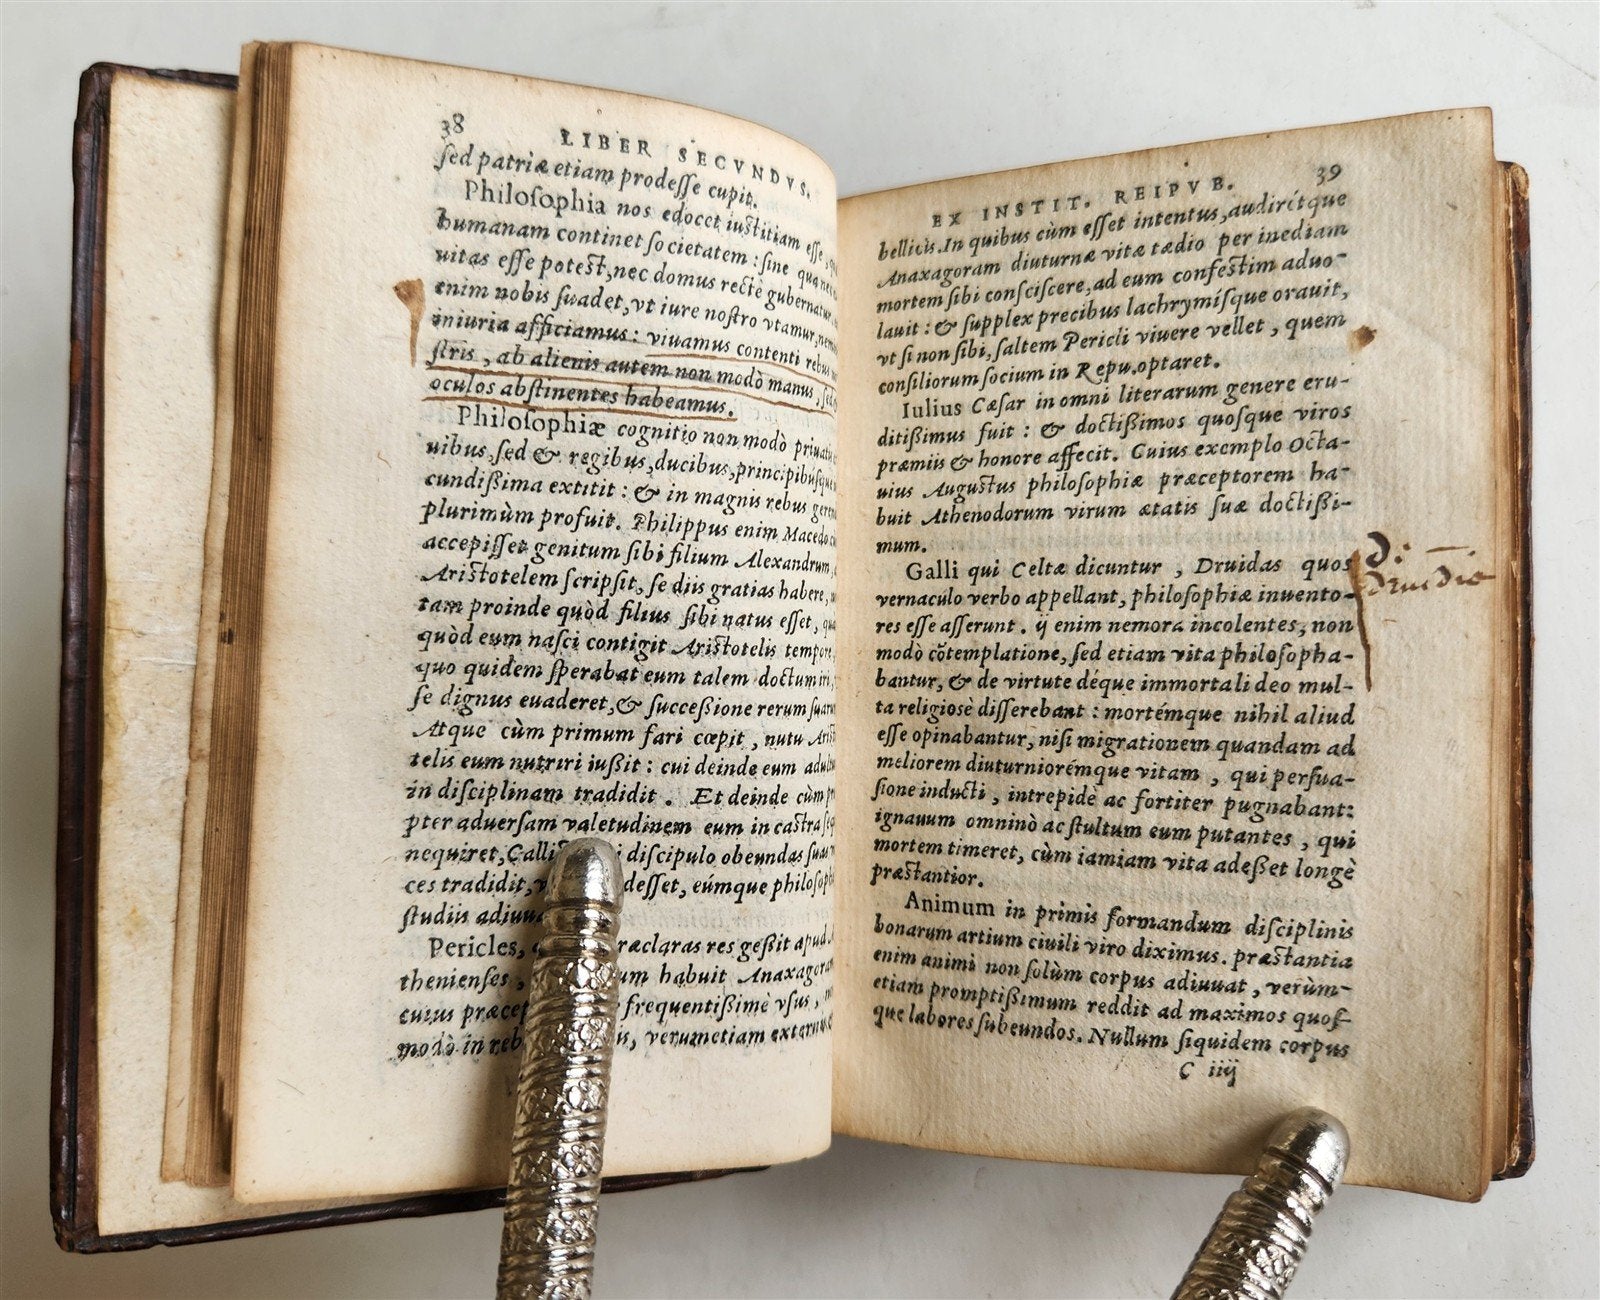 38
LIBER SECVNDVS.
sed patriæ etiam prodesse cupit.
Philosophia nos edocet iustitiam esse,
humanam continet societatem: sine qua nec
uitas esse potest, nec domus rectè gubernatur
enim nobis suadet, vt iure nostro vtamur,
iniuria afficiamus: viuamus contenti rebus
stris, ab alienis autem non modò manus, sed
oculos abstinentes habeamus.
Philosophiæ cognitio non modò priuatis
uibus, sed & regibus, ducibus, principibúsque
cundißima extitit: & in magnis rebus
plurimùm profuit. Philippus enim Macedo
accepisset genitum sibi filium Alexandrum,
Aristotelem scripsit, se diis gratias habere,
tam proinde quòd filius sibi natus esset,
quòd eum nasci contigit Aristotelis
quo quidem sperabat eum talem doctum iri,
se dignus euaderet, & succeßione rerum
Atque cùm primum fari cœpit, nutu
telis eum nutriri iußit: cui deinde eum
in disciplinam tradidit. Et deinde cùm
pter aduersam valetudinem eum in castra
nequiret, discipulo obeundas suas
ces tradidit, desset, eúmque
studiis
Pericles, res geßit apud
thenienses, habuit
cuius frequentißimè vsus,
modò in verumetiam
EX INSTIT. REIPVB. 39
bellicis. In quibus cùm esset intentus, audirétque
Anaxagoram diuturnæ vitæ tædio per inediam
mortem sibi consciscere, ad eum confestim aduo-
lauit: & supplex precibus lachrymísque orauit,
vt si non sibi, saltem Pericli viuere vellet, quem
consiliorum socium in Repu. optaret.
Iulius Cæsar in omni literarum genere eru-
ditißimus fuit: & doctißimos quosque viros
præmiis & honore affecit. Cuius exemplo Octa-
uius Augustus philosophiæ præceptorem ha-
buit Athenodorum virum ætatis suæ doctißi-
mum.
Galli qui Celtæ dicuntur, Druidas quos
vernaculo verbo appellant, philosophiæ inuento-
res esse asserunt. ij enim nemora incolentes, non
modò cōtemplatione, sed etiam vita philosopha-
bantur, & de virtute déque immortali deo mul-
ta religiosè disserebant: mortémque nihil aliud
esse opinabantur, nisi migrationem quandam ad
meliorem diuturniorémque vitam, qui persua-
sione inducti, intrepidè ac fortiter pugnabant:
ignauum omninò ac stultum eum putantes, qui
mortem timeret, cùm iamiam vita adeßet longè
præstantior.
Animum in primis formandum disciplinis
bonarum artium ciuili viro diximus. præstantia
enim animi non solùm corpus adiuuat, verùm-
etiam promptißimum reddit ad maximos quos-
que labores subeundos. Nullum siquidem corpus
C iiij